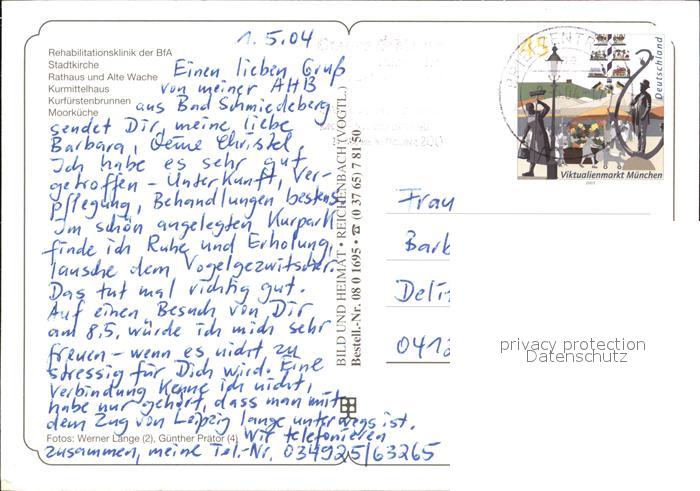 Rehabilitationsklinik der BfA
Stadtkirche
Rathaus und Alte Wache
Kurmittelhaus
Kurfürstenbrunnen
Moorküche
1.5.04
Einen lieben Gruß
von meiner AHB
aus Bad Schmiedeberg
sendet Dir, meine liebe
Barbara, Deine Christel.
Ich habe es sehr gut
getroffen - Unterkunft, Ver-
pflegung, Behandlungen bestens.
Im schön angelegten Kurpark
finde ich Ruhe und Erholung,
lausche dem Vogelgezwitscher.
Das tut mal richtig gut.
Auf einen Besuch von Dir
am 8.5. würde ich mich sehr
freuen - wenn es nicht zu
stressig für Dich wird. Eine
Verbindung kenne ich nicht,
habe nur gehört, dass man mit
dem Zug von Leipzig lange unterwegs ist.
Fotos: Werner Lange (2), Günther Prätor (4)
Wir telefonieren
zusammen, meine Tel.-Nr. 034925/63265
BILD UND HEIMAT • REICHENBACH (VOGTL.)
Bestell.-Nr. 08 0 1695 • ☎ (0 37 65) 7 81 50
BRIEFZENTRUM
45
Deutschland
Viktualienmarkt München
2003
Frau
Barb
Delit
0412
privacy protection
Datenschutz